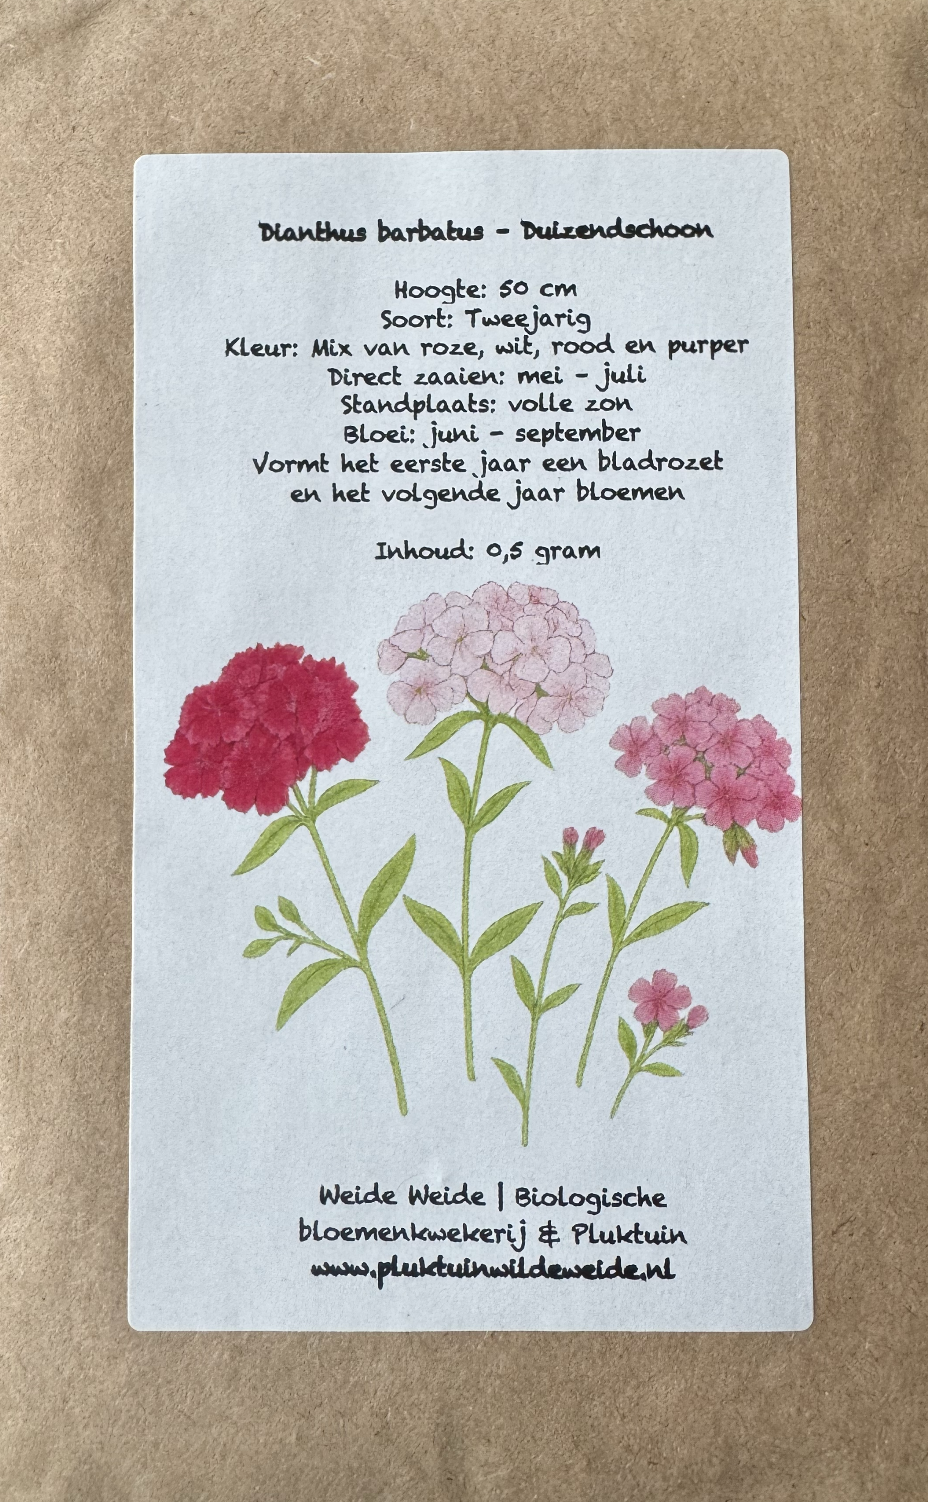 Dianthus barbatus - Duizendschoon
Hoogte: 50 cm
Soort: Tweejarig
Kleur: Mix van roze, wit, rood en purper
Direct zaaien: mei - juli
Standplaats: volle zon
Bloei: juni - september
Vormt het eerste jaar een bladrozet
en het volgende jaar bloemen
Inhoud: 0,5 gram
Weide Weide | Biologische
bloemenkwekerij & Pluktuin
www.pluktuinwildeweide.nl